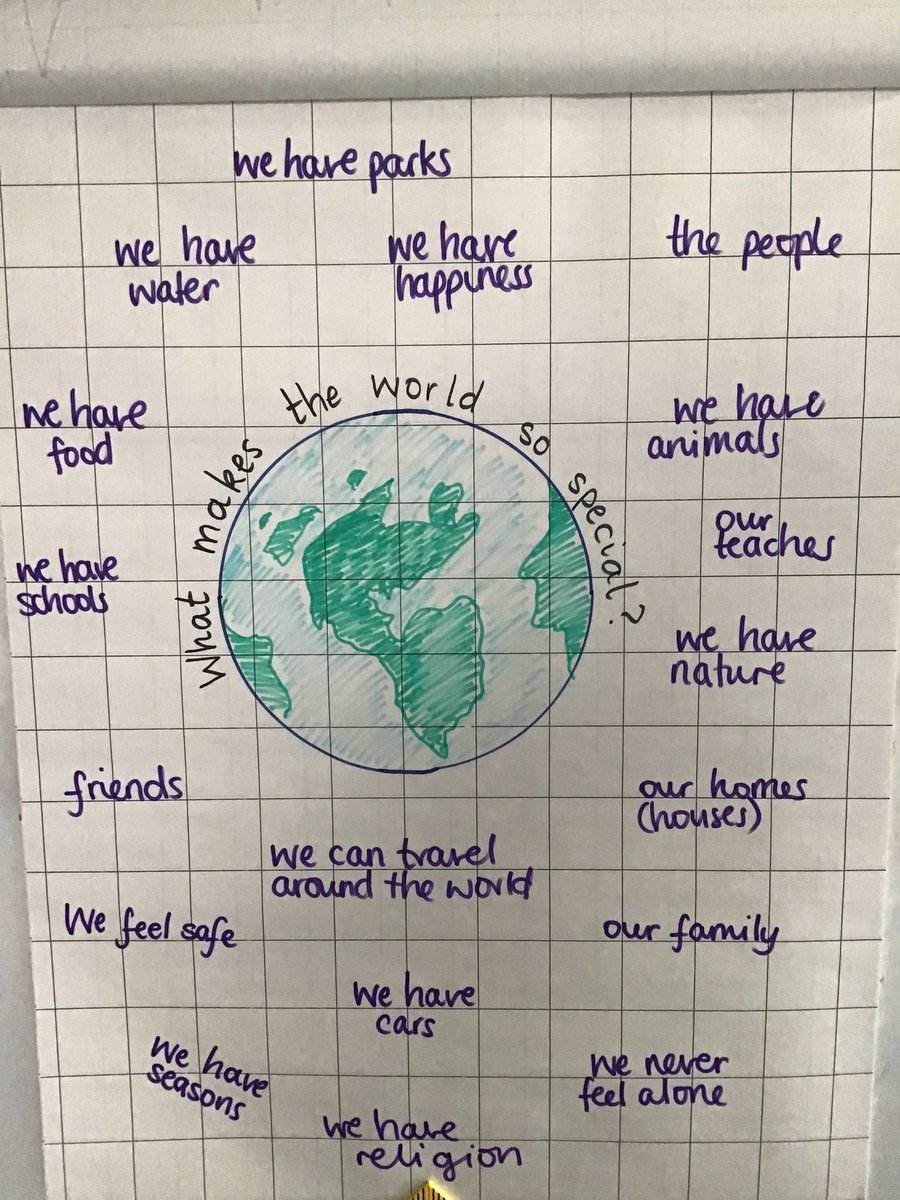 we have parks
we have
water
we have
happiness
the people
What makes the world so special?
we have
food
we have
animals
our
teaches
we have
schools
we have
nature
friends
our homes
(houses)
we can travel
around the world
We feel safe
our family
we have
cars
we have
seasons
we never
feel alone
we have
religion